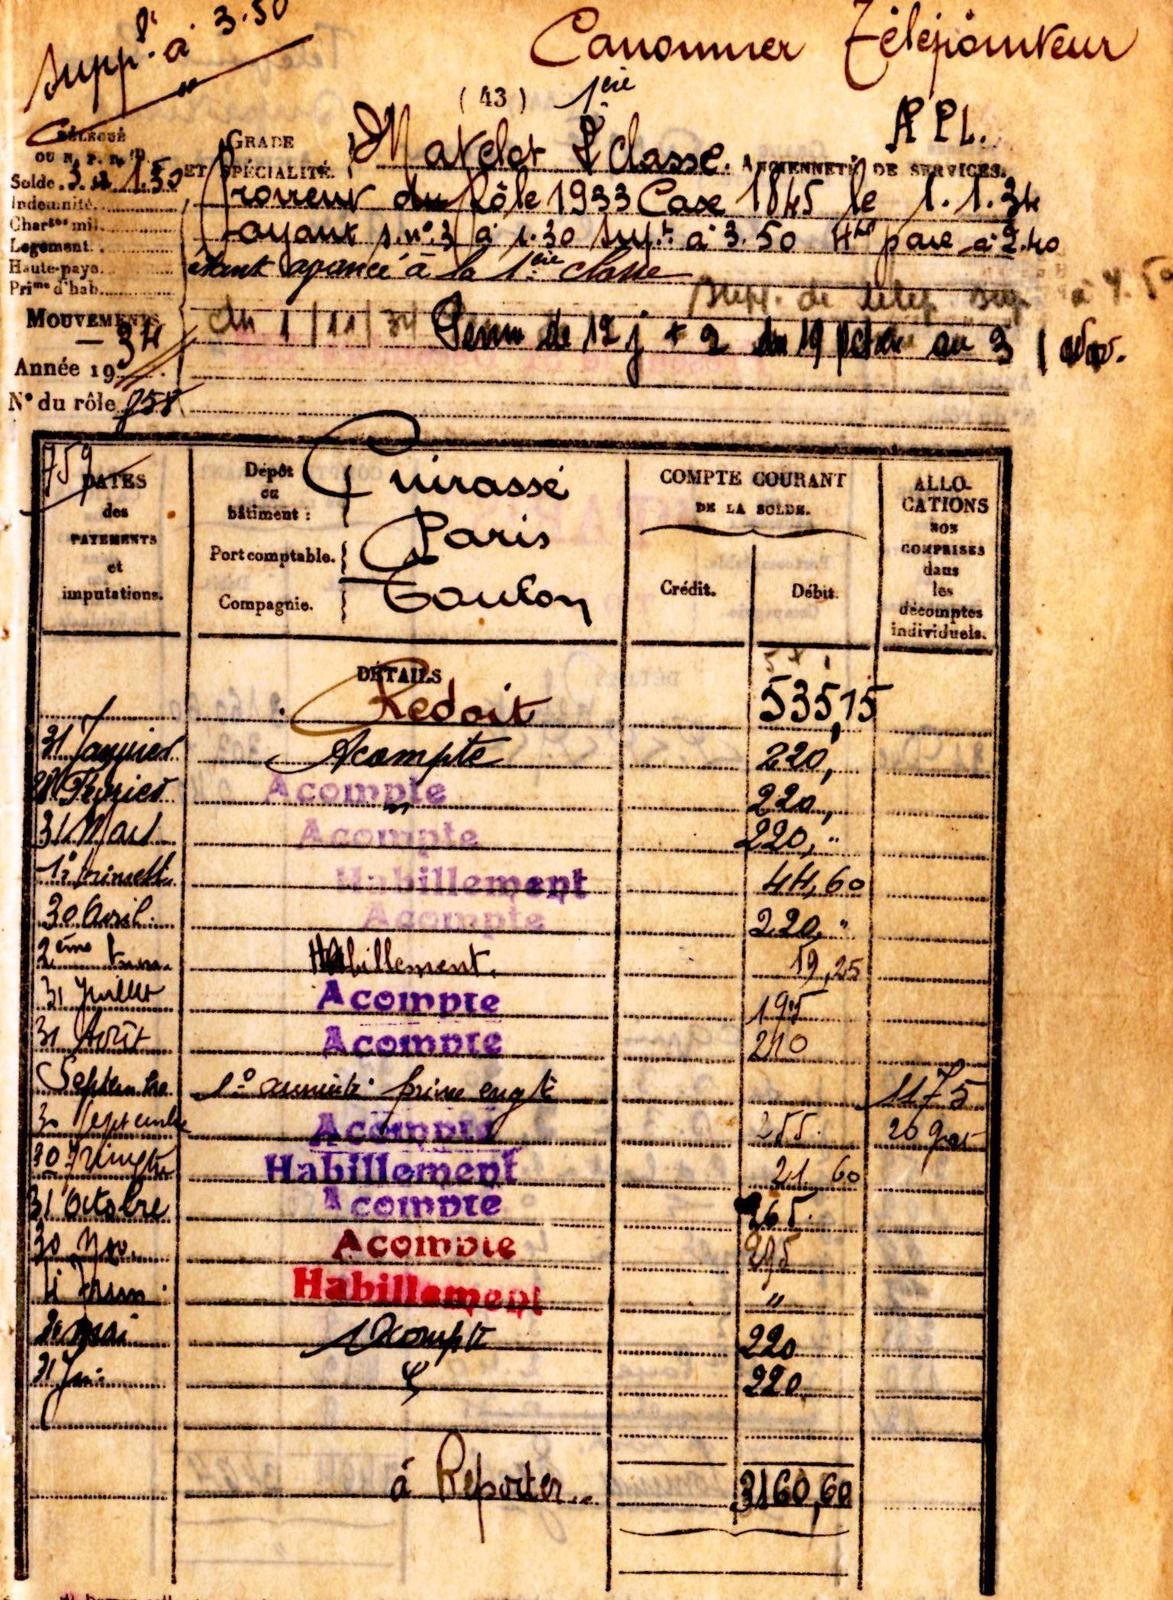 Supp.t à 3.50
Canonnier Télépointeur
(43) 1ère
DÉLÉGUÉ
OU N. P. N.
GRADE
ET SPÉCIALITÉ.
Matelot 2 classe.
A P L.
ANCIENNETÉ DE SERVICES.
Solde. 1.50
Indemnité.
Char^tes mil.
Logement.
Haute-paye.
Pri^me d'hab.
Provient du rôle 1933 Case 1845 le 1.1.34
ayant s. n° 3 à 1.30 supt. à 3.50 Hte paie à 2.40
étant avancé à la 1ère classe
du 1/11/34
Perm de 12 j + 2 du 19 au 3
MOUVEMENTS
Année 19 34
N° du rôle 758
759
DATES
des
PAYEMENTS
et
imputations.
Dépôt
ou
bâtiment :
Cuirassé
Paris
Port comptable.
Toulon
Compagnie.
COMPTE COURANT
DE LA SOLDE.
Crédit.
Débit.
ALLO-
CATIONS
NON
COMPRISES
dans
les
décomptes
individuels.
DÉTAILS
Redoit 535,15
31 Janvier Acompte 220,
28 Février Acompte 220,
31 Mars Acompte 220, "
1er trimest. Habillement 44,60
30 Avril. Acompte 220, "
2ème trim. Habillement. 19,25
31 Juillet Acompte 195
31 Août Acompte 210
Septembre 1° annuité prime engt 1175
30 Septembre Acompte 255. 20
30 Habillement 21.60
31 Octobre Acompte 265.
30 Nov. Acompte 295
4 trim. Habillement "
mai Acompte 220
31 Juin 220
à Reporter.. 3160,60